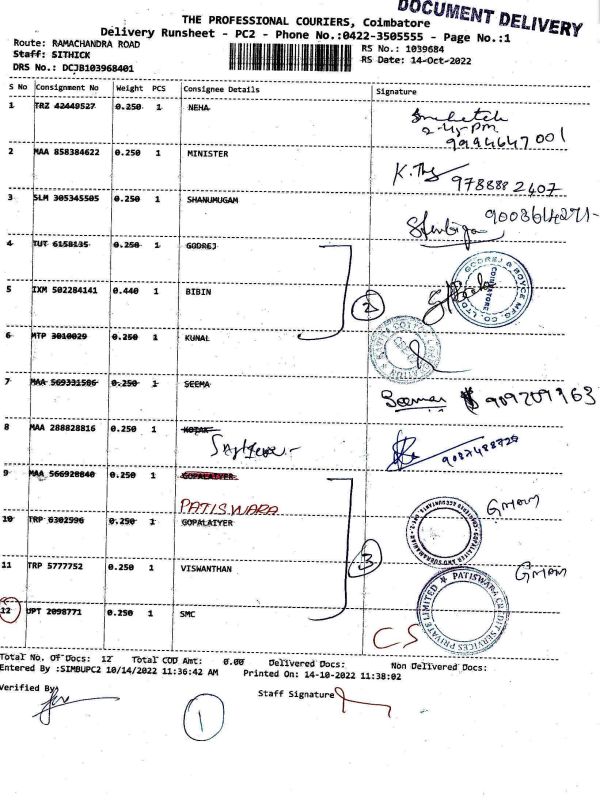 DOCUMENT DELIVERY
THE PROFESSIONAL COURIERS, Coimbatore
Delivery Runsheet - PC2 - Phone No.:0422-3505555 - Page No.:1
Route: RAMACHANDRA ROAD
Staff: SITHICK
DRS No.: DCJB103968401
RS No.: 1039684
RS Date: 14-Oct-2022
S No Consignment No Weight PCS Consignee Details Signature
1 TRZ 42440527 0.250 1 NEHA
2-45 PM
2 MAA 858384622 0.250 1 MINISTER
9788882407
3 SLM 305345505 0.250 1 SHANUMUGAM
4 TUT 6158135 0.250 1 GODREJ
GODREJ & BOYCE MFG. CO. LTD.
COIMBATORE
5 IXM 502284141 0.440 1 BIBIN
2
6 MTP 3010029 0.250 1 KUNAL
7 MAA 569331506 0.250 1 SEEMA
8 MAA 288828816 0.250 1 KOTAK
9087488729
9 MAA 566928840 0.250 1 GOPALAIYER
PATISWARA
10 TRP 6302596 0.250 1 GOPALAIYER
3
11 TRP 5777752 0.250 1 VISWANTHAN
PATISWARA CREDIT SERVICES PRIVATE LIMITED
12 UPT 2098771 0.250 1 SMC
CS
Total No. Of Docs: 12 Total COD Amt: 0.00 Delivered Docs: Non Delivered Docs:
Entered By :SIMBUPC2 10/14/2022 11:36:42 AM Printed On: 14-10-2022 11:38:02
Verified By
Staff Signature
1